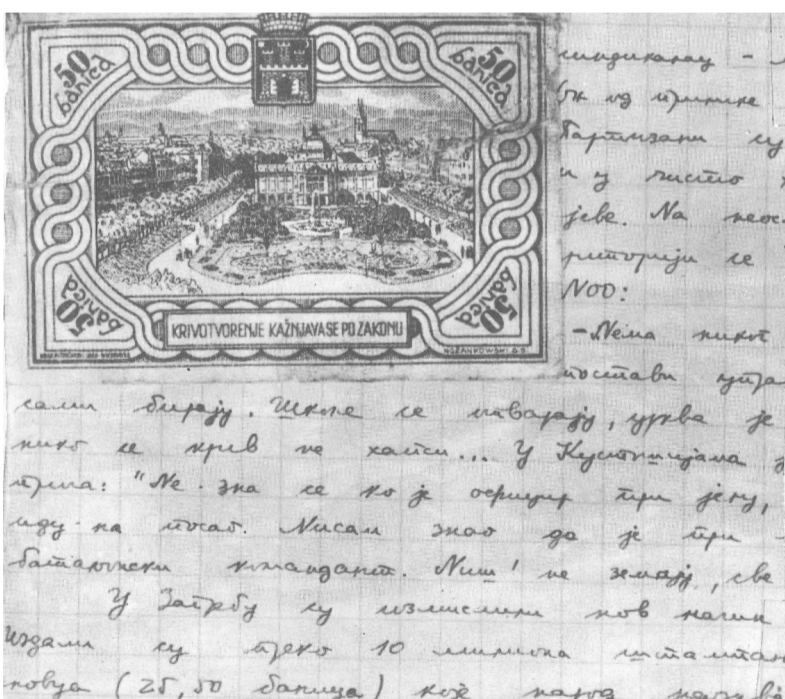 50 banica
50 banica
50 banica
50 banica
KRIVOTVORENJE KAŽNJAVA SE PO ZAKONU
ROŽANKOWSKI D.D.
синдикалац -
од прилике
Партизани су
и у чисто
јеве. На
риторији се
НОО:
-Нема никог
постави
сами бирају. Школе се отварају, црква је
нико се крив не хапси... У Кустошијама
прича: "Не зна се ко је официр при јелу,
иду на посао. Нисам знао да је при
батаљонски командант. Ниш' не земају, све
У Загребу су измислили нов начин
Издали су преко 10 милиона штампан
новца (25, 50 баница) које народ назива